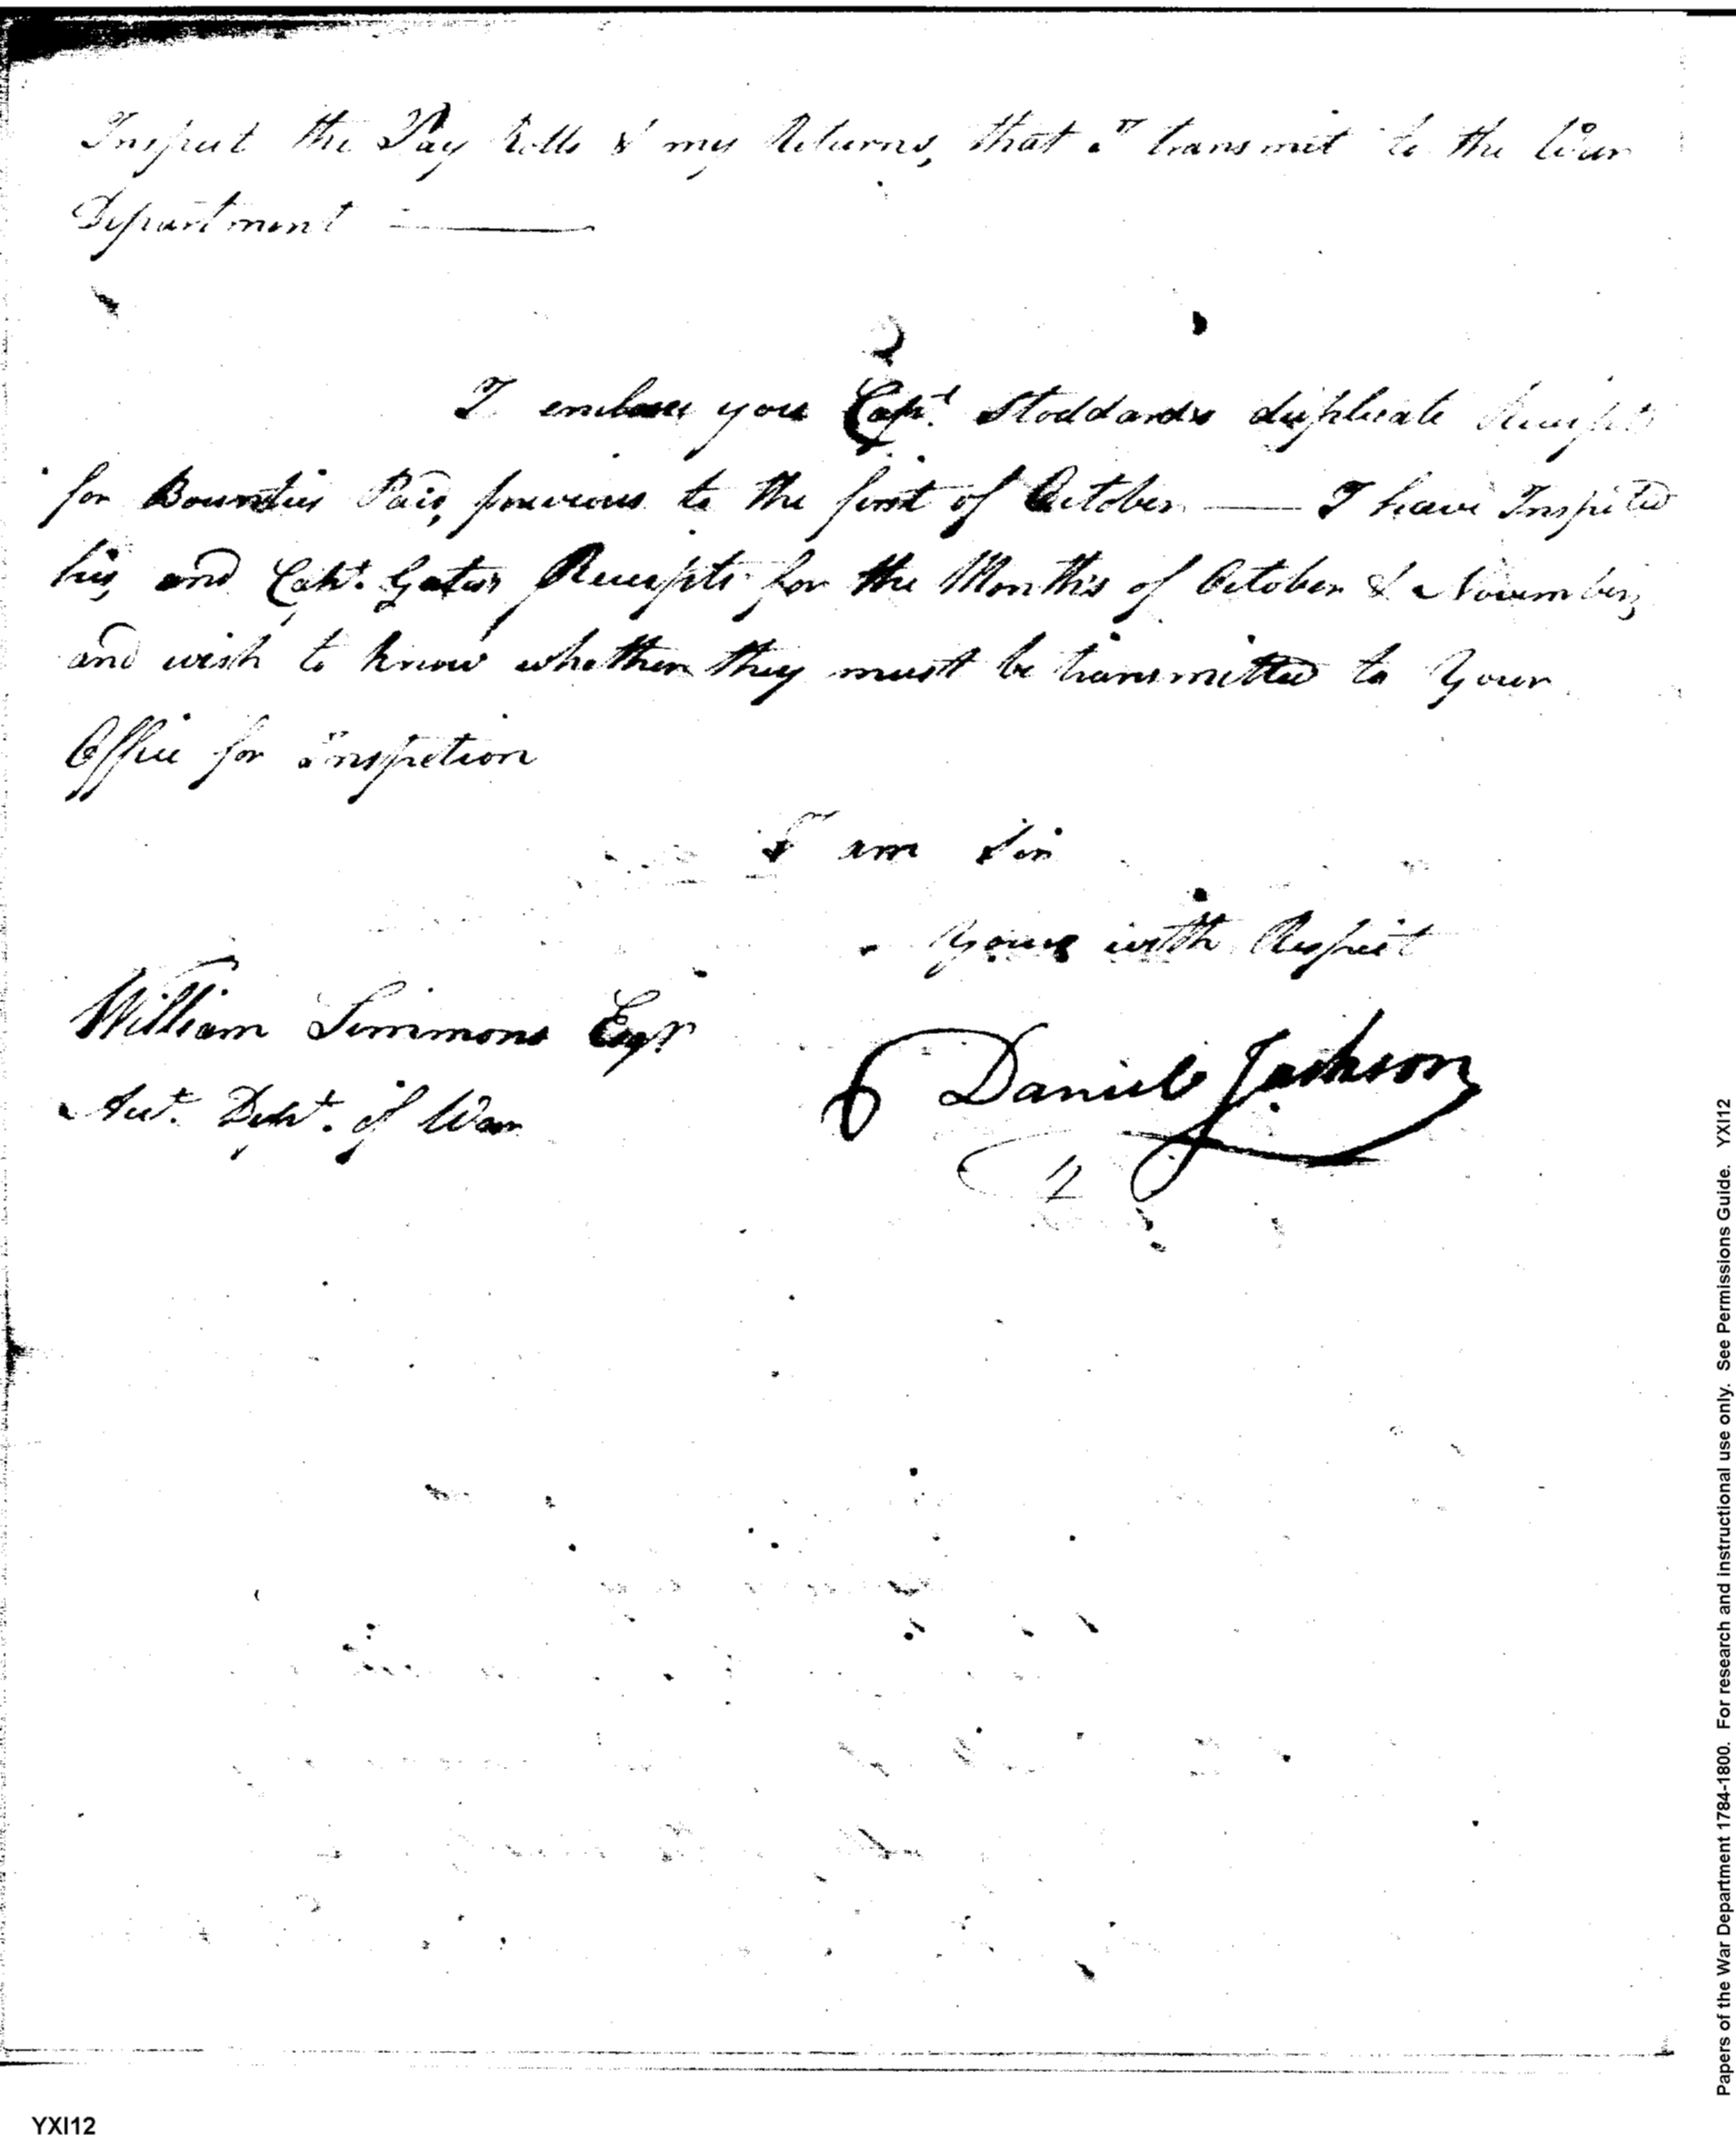 Inspect the Pay Rolls & my Returns, that I transmit to the War
Department ———
I enclose you Capt. Stoddards duplicate Receipts
for Bounties Paid, previous to the first of October — I have Inspected
his, and Capt. Gates's Receipts for the Months of October & November,
and wish to know whether they must be transmitted to Your
Office for Inspection
I am Sir
Yours with Respect
William Simmons Esqr
Daniel Jackson
Act. Dept. of War
Papers of the War Department 1784-1800. For research and instructional use only. See Permissions Guide. YXI12
YXI12